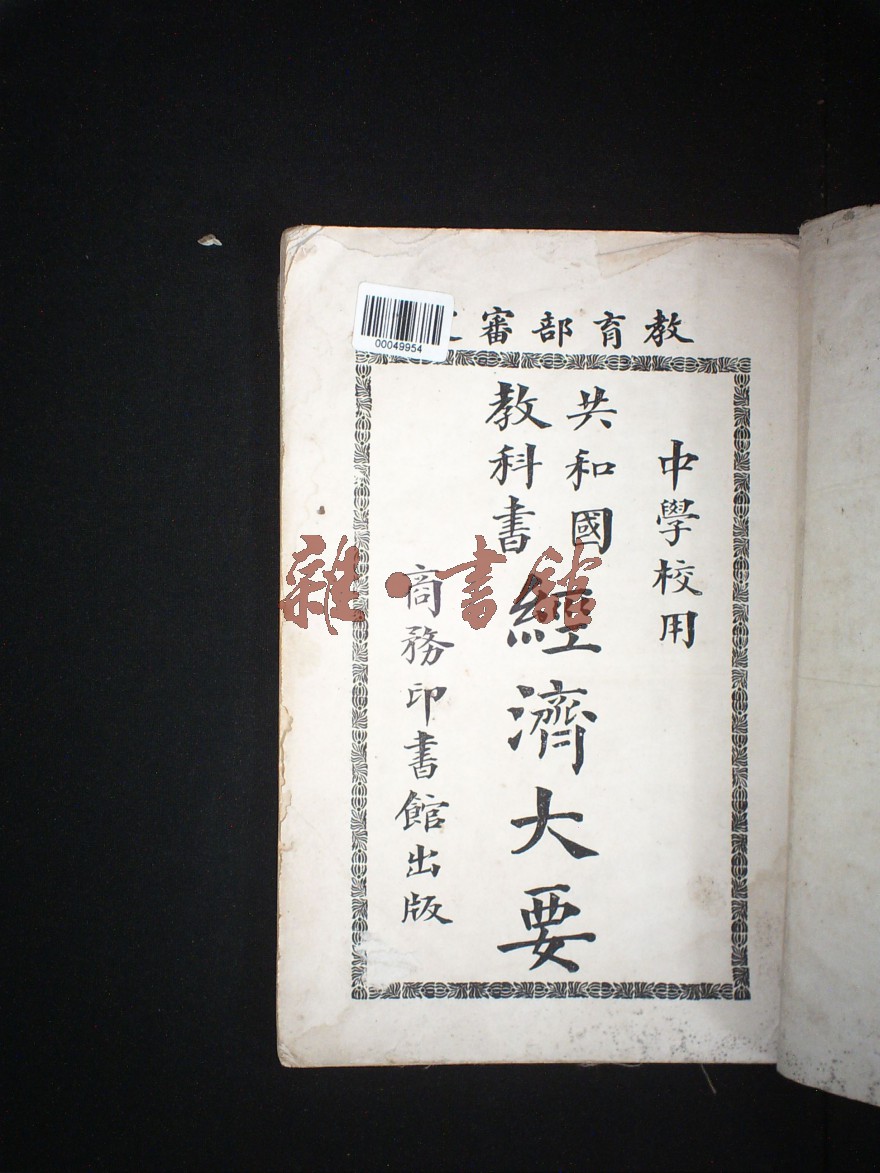 教育部審定
中學校用
共和國
教科書
經濟大要
商務印書館出版
00049954
雜·書館